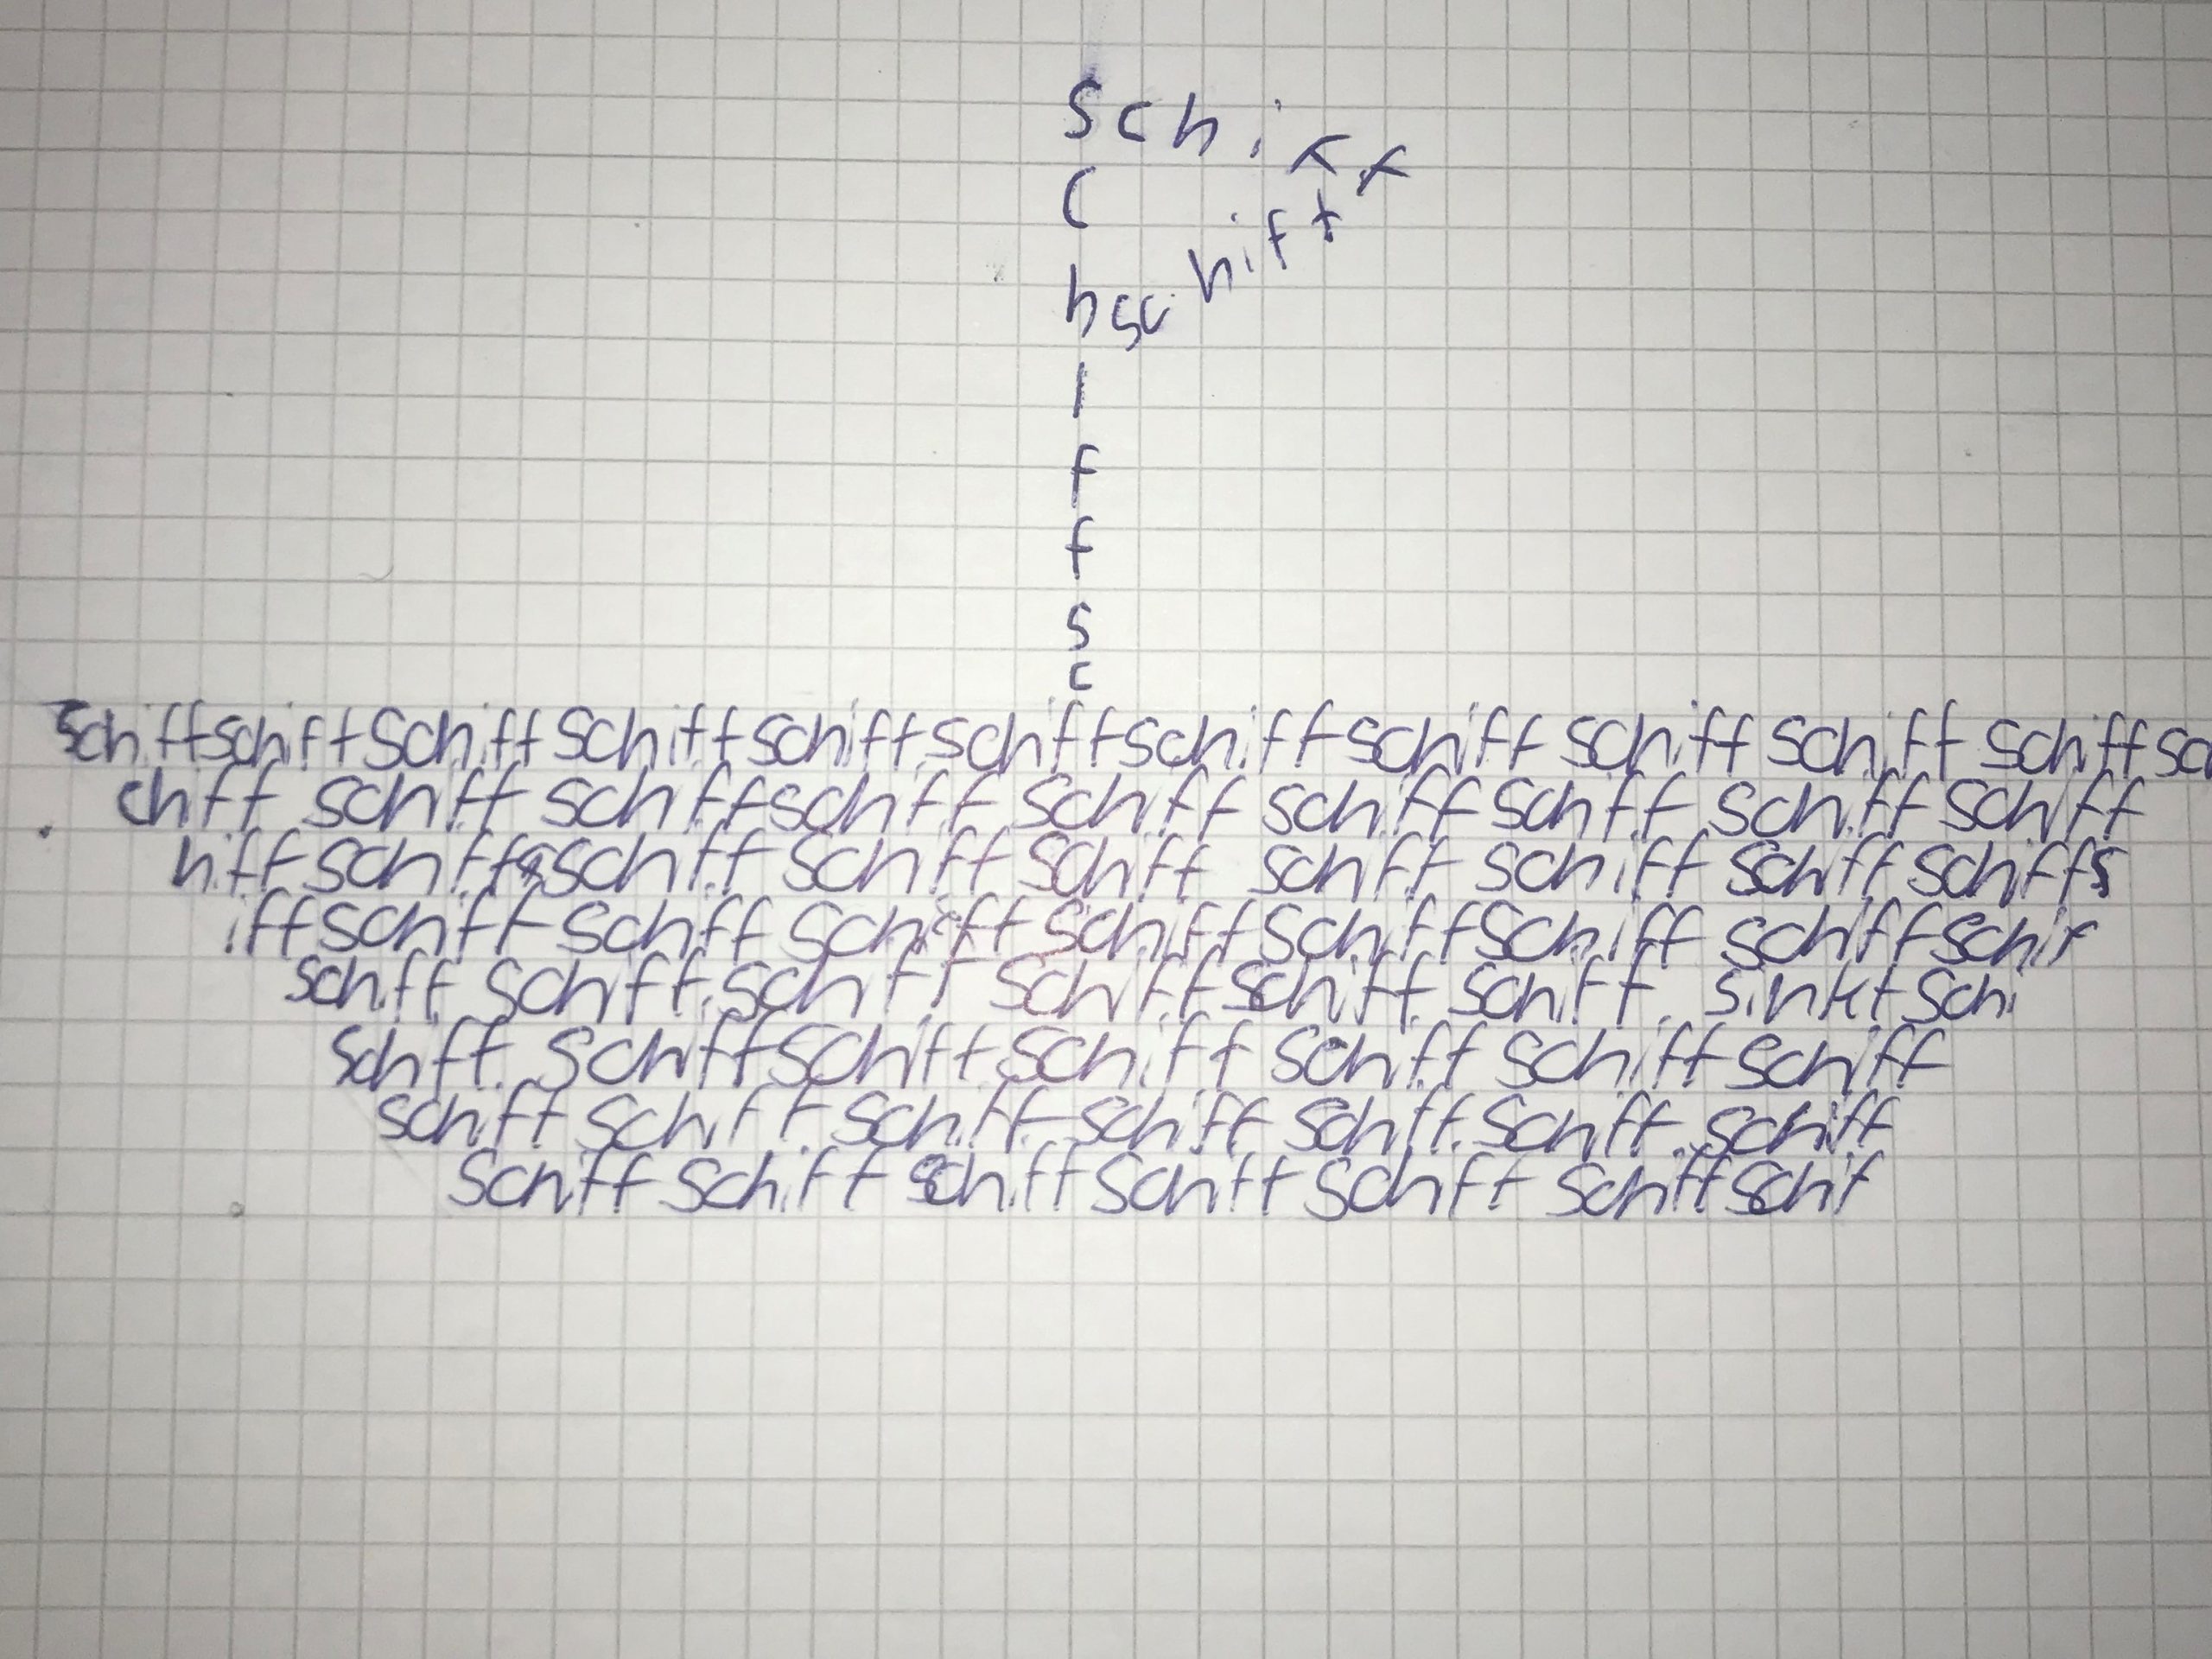 Schiff
c
hschiff
i
f
f
s
c
SchiffschiffSchiffSchiffschiffschiffschiffschiffschiffschiffschiffsc
chiff schiff schiffschiff schiff schiff schiff schiff schiff
hiffschiffsschiff schiff schiff schiff schiff schiff schiffs
iffschiff schiff schiff schiffschiffschiff schiffschif
schiff schiff schiff schiffschiff schiff sinkt schi
schiff schiffschiff schiff schiff schiff schiff
schiff schiff schiff schiff schiff schiff schiff
schiff schiff schiff schiff schiff schiffschif